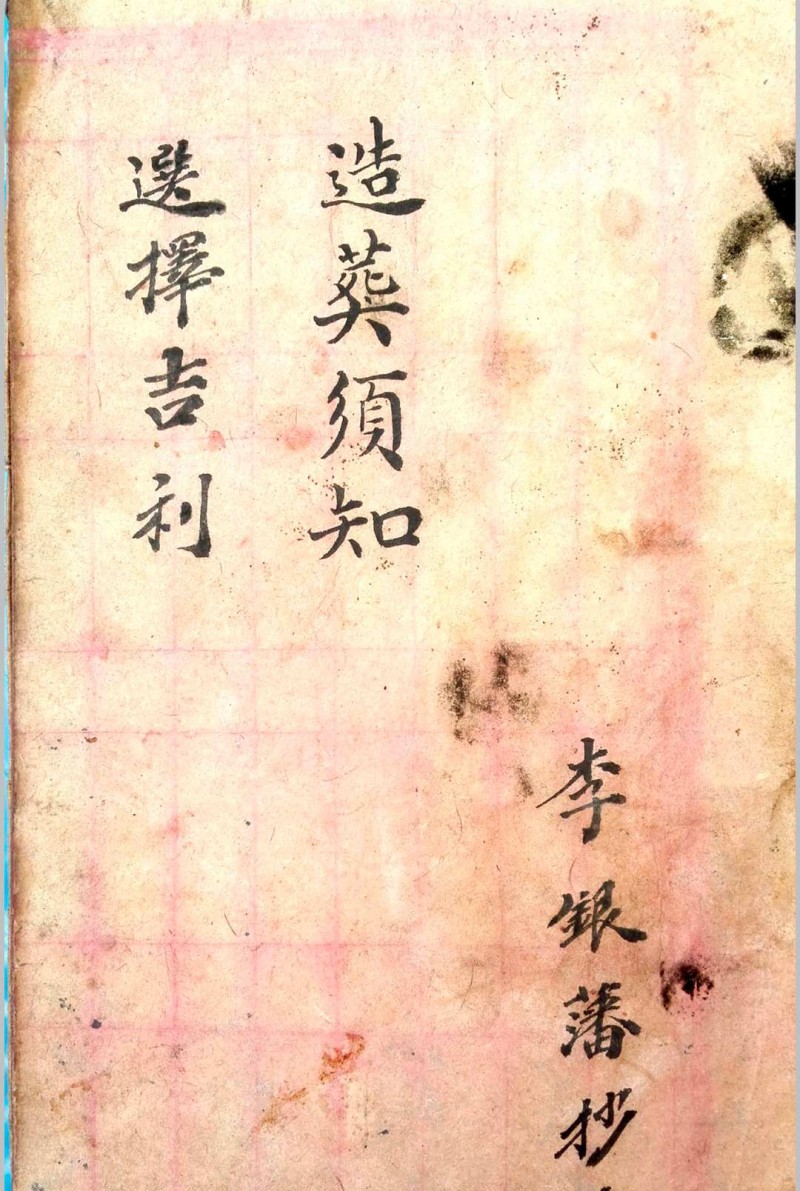 李銀藩抄
造葬須知
選擇吉利